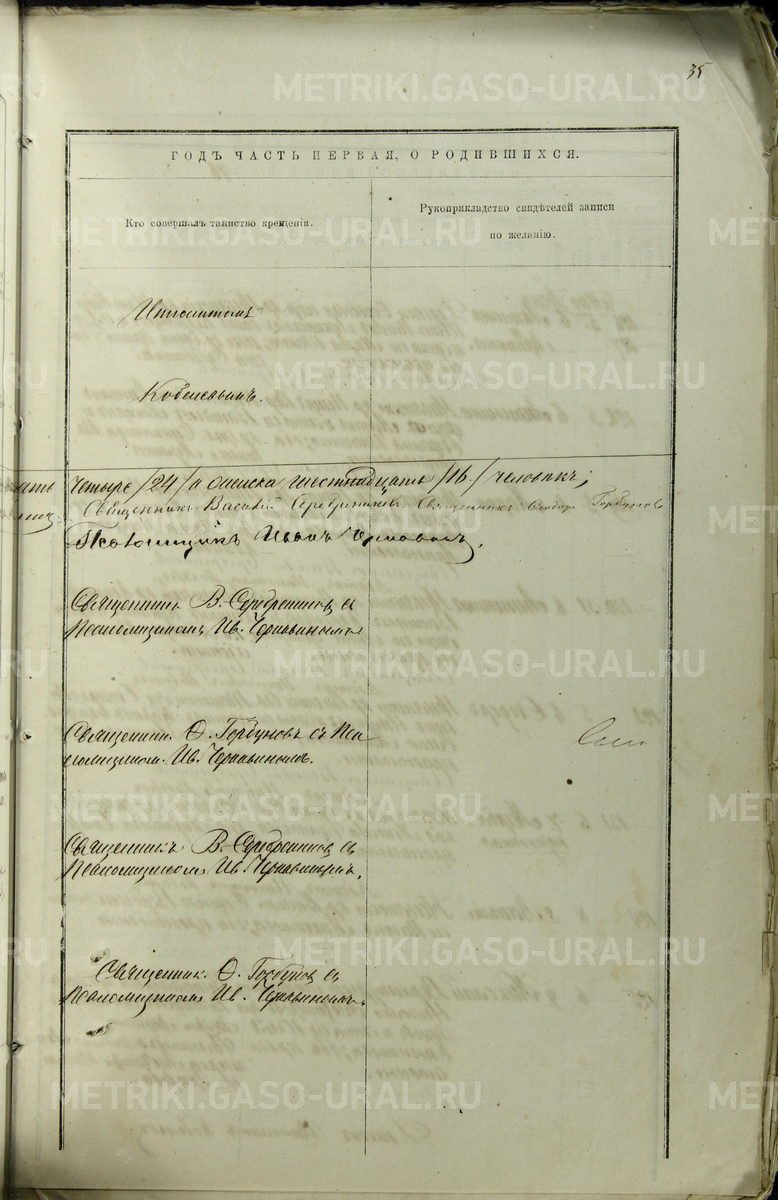 35
ГОДЪ ЧАСТЬ ПЕРВАЯ, О РОДИВШИХСЯ.
Кто совершалъ таинство крещенія.
Рукоприкладство свидѣтелей записи
по желанію.
четыре /24/ а обоика шестнадцать /16/ человѣкъ;
Священникъ Василій Серебрениковъ. Священникъ: Ѳеодоръ Горбуновъ
Псаломщикъ Иванъ Чернавинъ.
Священникъ В. Серебрениковъ съ
Псаломщикомъ Ив. Чернавинымъ
Священник. Ѳ. Горбуновъ съ Пса
ломщиком. Ив. Чернавинымъ.
Священникъ В. Серебрениковъ съ
Псаломщикомъ Ив. Чернавинымъ.
Священник. Ѳ. Горбуновъ съ
Псаломщикомъ Ив. Чернавинымъ.
METRIKI.GASO-URAL.RU